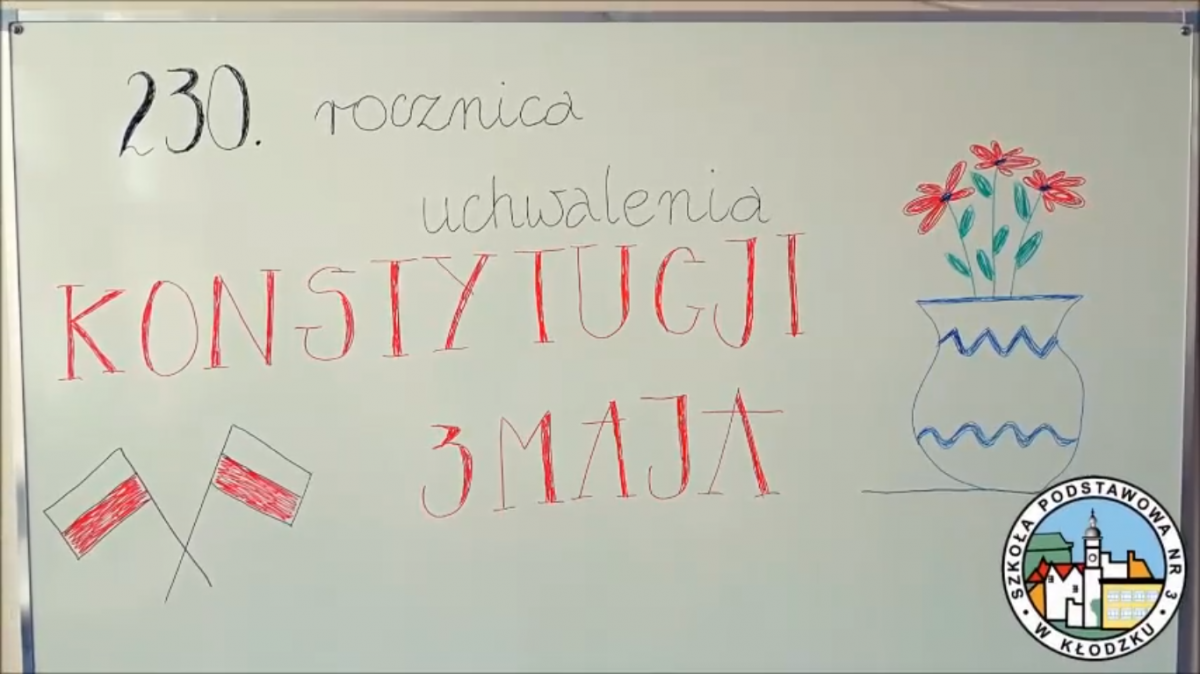 230. rocznica
uchwalenia
KONSTYTUCJI
3 MAJA
SZKOŁA PODSTAWOWA NR 3
W KŁODZKU